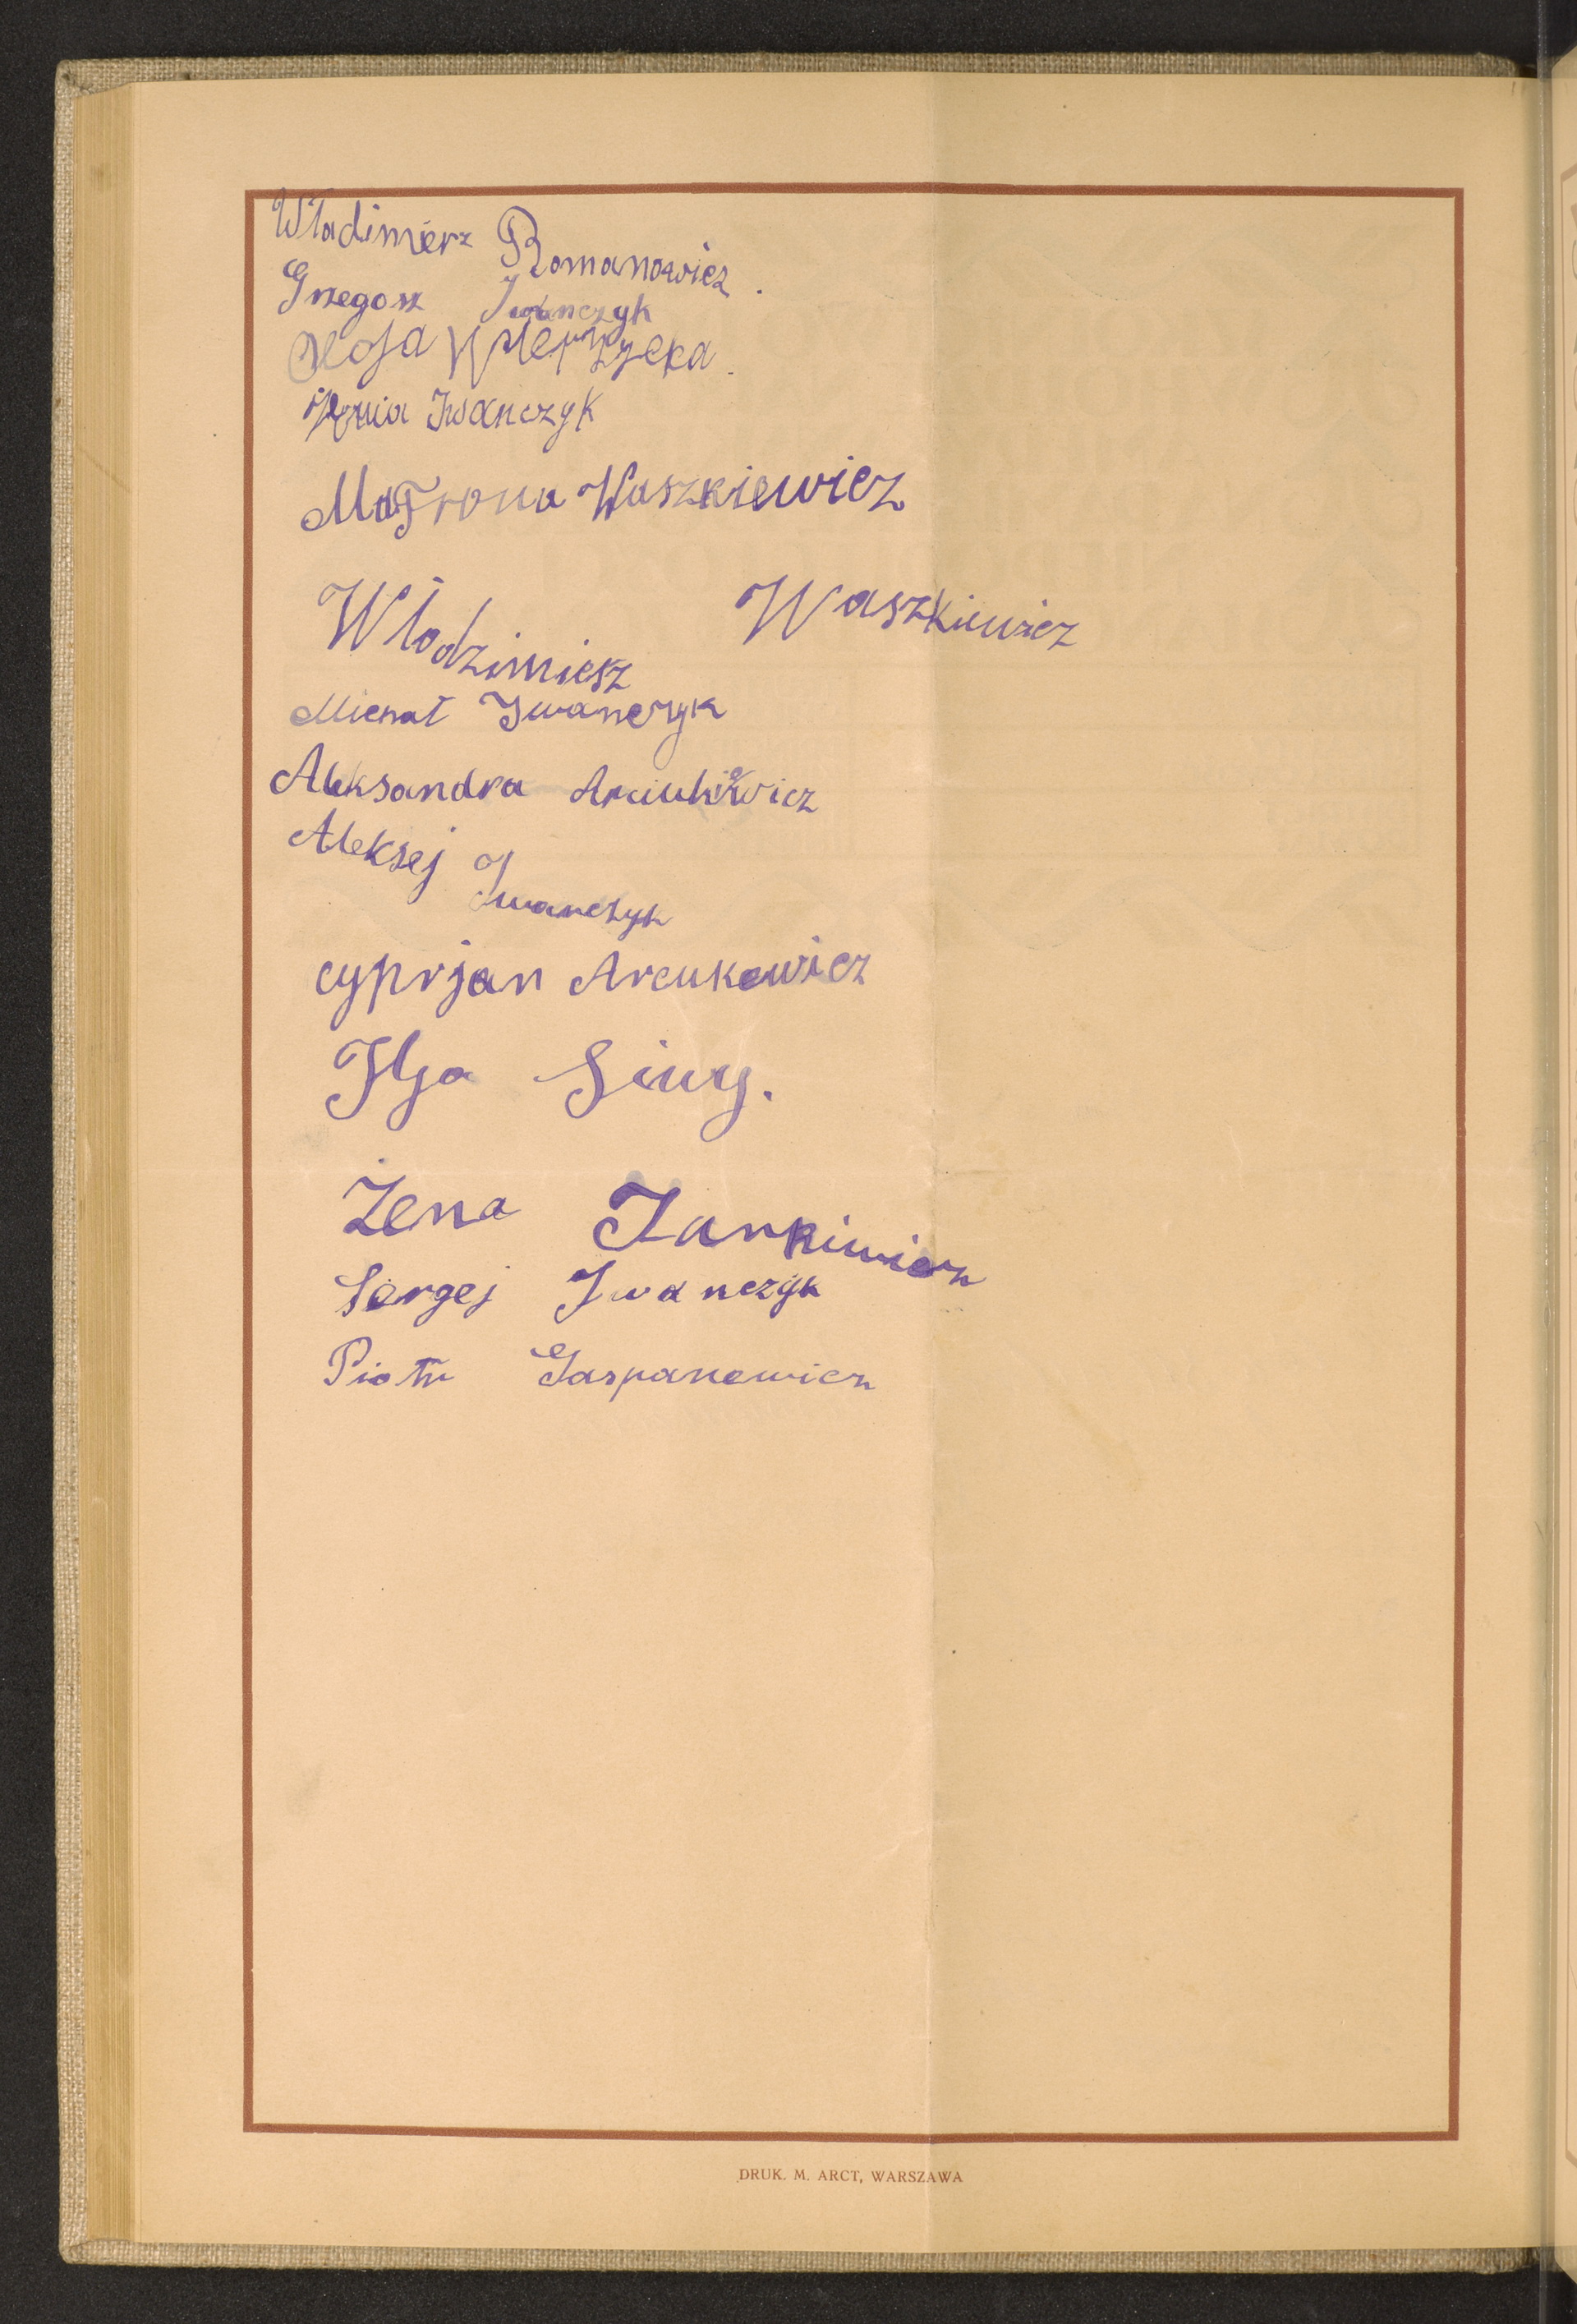 Władimierz Romanowicz.
Grzegosz Iwanczyk
Iwanczyk
Matrona Waszkiewicz
Włodzimiesz Waszkiewicz
Michał Iwanczyk
Aleksandra Arciukiewicz
Aleksej Iwanczyk
cyprjan Arcukewicz
Ilja Siwy.
Żena
Sergej Iwanczyk
Piotr Gasparewicz
DRUK. M. ARCT, WARSZAWA